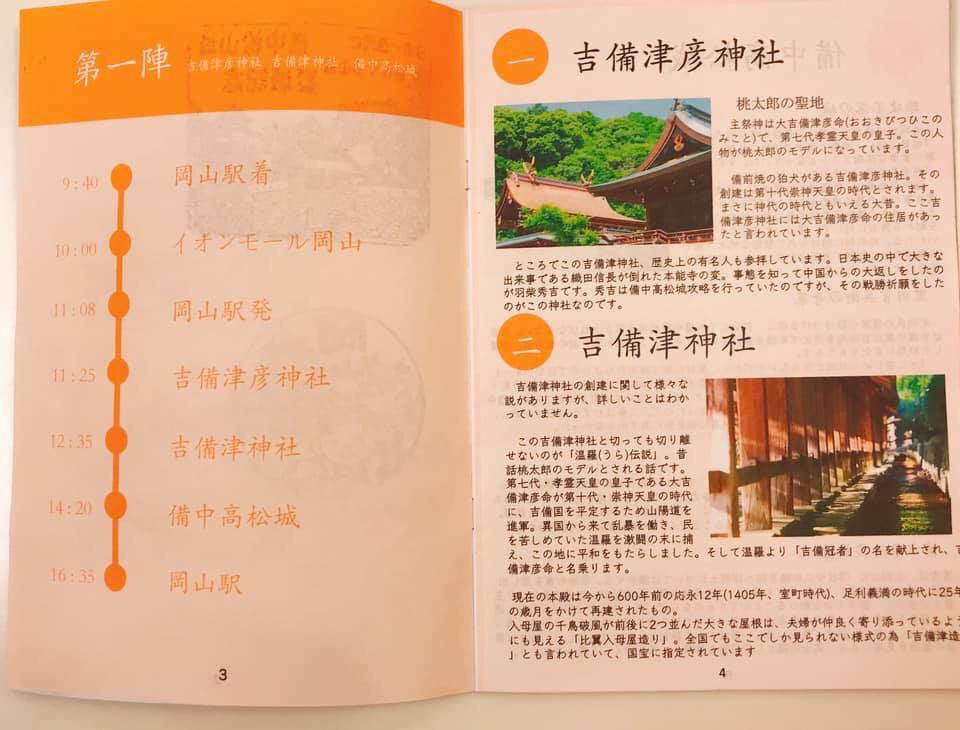 第一陣 吉備津彦神社 吉備津神社 備中高松城
9:40 岡山駅着
10:00 イオンモール岡山
11:08 岡山駅発
11:25 吉備津彦神社
12:35 吉備津神社
14:20 備中高松城
16:35 岡山駅
3
一 吉備津彦神社
桃太郎の聖地
主祭神は大吉備津彦命(おおきびつひこの
みこと)で、第七代孝霊天皇の皇子。この人
物が桃太郎のモデルになっています。
備前焼の狛犬がある吉備津彦神社。その
創建は第十代崇神天皇の時代とされます。
まさに神代の時代ともいえる大昔。ここ吉
備津彦神社には大吉備津彦命の住居があっ
たと言われています。
ところでこの吉備津神社、歴史上の有名人も参拝しています。日本史の中で大きな
出来事である織田信長が倒れた本能寺の変。事態を知って中国からの大返しをしたの
が羽柴秀吉です。秀吉は備中高松城攻略を行っていたのですが、その戦勝祈願をした
のがこの神社なのです。
二 吉備津神社
吉備津神社の創建に関して様々な
説がありますが、詳しいことはわか
っていません。
この吉備津神社と切っても切り離
せないのが「温羅(うら)伝説」。昔
話桃太郎のモデルとされる話です。
第七代・孝霊天皇の皇子である大吉
備津彦命が第十代・崇神天皇の時代
に、吉備国を平定するため山陽道を
進軍。異国から来て乱暴を働き、民
を苦しめていた温羅を激闘の末に捕
え、この地に平和をもたらしました。そして温羅より「吉備冠者」の名を献上され、吉
備津彦命と名乗ります。
現在の本殿は今から600年前の応永12年(1405年、室町時代)、足利義満の時代に25年
の歳月をかけて再建されたもの。
入母屋の千鳥破風が前後に2つ並んだ大きな屋根は、夫婦が仲良く寄り添っているよう
にも見える「比翼入母屋造り」。全国でもここでしか見られない様式の為「吉備津造
」とも言われていて、国宝に指定されています
4